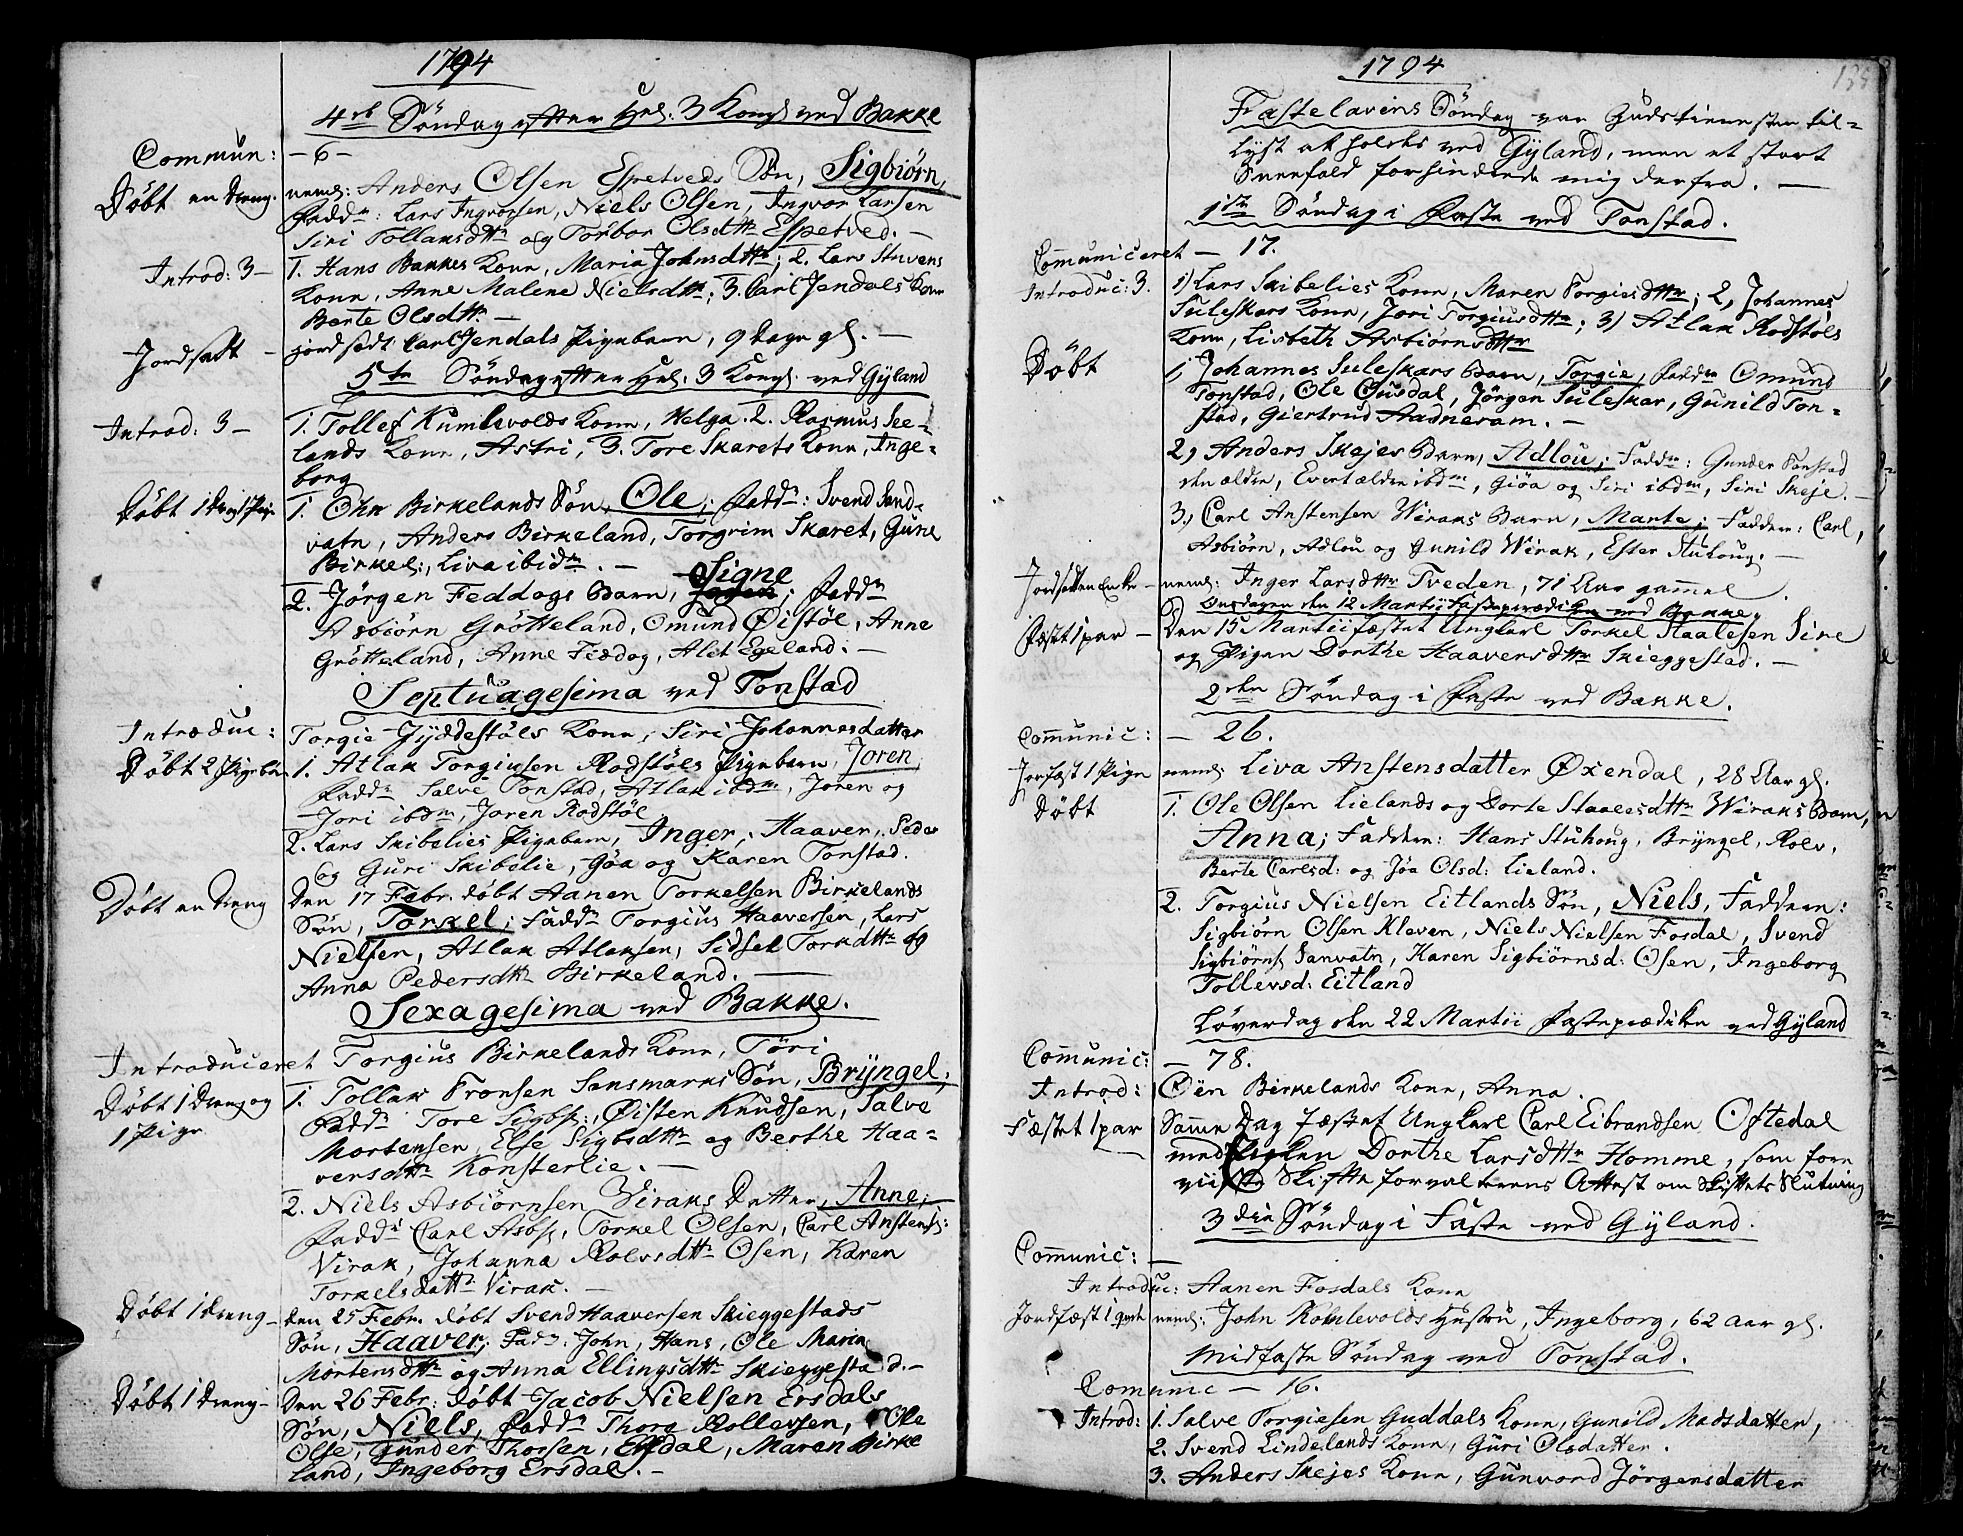 1794
4de Söndag efter Hel: 3 Kong: ved Bakke
Commun: -6-
Döbt en Dreng. neml: Anders Olsen Espetveds Sön, Sigbiörn,
Fadd: Lars Ingvorsen, Niels Olsen, Ingvor Larsen
Siri Tollaksdttr og Torbor Olsdttr Espetved. –
Introd: 3 – 1. Hans Bakkes Kone, Maria Johnsdttr; 2. Lars Stuvens
Kone, Anne Malene Nielsdttr; 3. Carl Jendals Kone
Berte Olsdttr. –
Jordsatt – jordsadt Carl Jendals Pigebarn, 9 Dage gl. –
5te Söndag efter Hel: 3 Kong: ved Gyland
Introd: 3 – 1. Tollef Kumlevolds Kone, Helga. 2. Rasmus See-
lands Kone, Astri, 3. Tore Skarets Kone, Inge-
borg
Döbt 1 Dreng 1 Pige 1. Ohn Birkelands Sön, Ole; Fadd: Svend Sand-
vatn, Anders Birkeland, Torgrim Skaret, Gune
Birkel:, Liva ibidm. –
Signe
2. Jörgen Feddogs Barn, ; Fadd
Asbiörn Grötteland, Omund Öistöl, Anne
Grötteland, Anne Fiddog, Alet Egeland. –
Septuagesima ved Tonstad
Introduc: Torgie Jyddestöls Kone, Siri Johannesdatter
Döbt 2 Pigebn 1. Atlak Torgiusen Rodstöls Pigebarn, Joren
Fadd Salve Tonstad, Atlak ibdm, Joren og
Jori ibdm, Joren Rodstöl
2. Lars Skibelies Pigebarn, Inger, Haaver, Peder
og Guri Skibelie, Göa og Karen Tonstad.
Döbt en Dreng Den 17 Febr. döbt Aanen Torkelsen Birkelands
Sön, Torkel; Fadd Torgius Haaversen, Lars
Nielsen, Atlak Atlaksen, Sidsel Torkdttr og
Anna Pedersdttr Birkeland. –
Sexagesima ved Bakke.
Introduceret Torgius Birkelands Kone, Töri
Döbt 1 Dreng og 1. Tollak Fronsen Sansmarks Sön, Bryngel;
1 Pige Fadd Tore Sigbs:, Öisten Knudsen, Salve
Mortensen, Else Sigbsdttr og Berthe Haa-
versdttr Konsterlie. –
2. Niels Asbiörnsen Viraks Datter, Anne; –
Fadd Carl Asbs:, Torkel Olsen, Carl Anstens:
Virak, Johanna Rolvsdttr Osen, Karen
Torkelsdattr Virak. –
Döbt 1 Dreng – Den 25 Febr. döbt Svend Haaversen Skieggestads
Sön, Haaver; Fad: John, Hans, Ole Maria
Mortensdttr og Anna Ellingsdttr Skieggestad. –
Döbt 1 Dreng – Den 26 Febr: döbt Jacob Nielsen Ersdals
Sön, Niels, Fadd Thore Rollevsen, Ole
Olse, Gunder Thorsen, Ersdal, Maren Birke
land, Ingeborg Ersdal. –
1794
Fastelavens Söndag var Gudstienesten til-
lyst at holdes ved Gyland, men et stort
Sneefald forhindrede mig derfra. –
1ste Söndag i Faste ved Tonstad.
Communiceret – 17.
Introduc: 3. 1) Lars Skibelies Kone, Maren Torgiesdttr; 2, Johannes
Suleskars Kone, Jori Torgiusdttr; 3) Atlak Rodstöls
Kone, Lisbeth Asbiörnsdttr
Döbt 1, Johannes Suleskars Barn, Torgie, Fadd Omund
Tonstad, Ole Ousdal, Jörgen Suleskar, Gunild Ton-
stad, Giertrud Aadneram. –
2, Anders Skejes Barn, Adlou; Fadd: Gunder Tonstad
den ældre, Evert ældre ibdm, Giöa og Siri ibdm, Siri Skeje. –
3, Carl Anstensen Wiraks Barn, Marte; Faddere: Carl,
Asbiörn, Adlou og Gunild Wirak, Ester Stuhoug. –
Jordsatt en Enke – neml: Inger Larsdttr Tveden, 71 Aar gammel.
Onsdagen den 12 Martii Fasteprædiken ved Bakke.
Fæst 1 par – Den 15 Martii fæstet Ungkarl Torkel Staalesen Sire
og Pigen Dorthe Haaversdttr Skieggestad. –
2den Söndag i Faste ved Bakke.
Communic: – 26.
Jorfæst 1 Pige neml: Liva Anstensdatter Öxendal, 28 Aar gl.
Döbt 1. Ole Olsen Lielands og Dorte Staalesdttr Wiraks Barn,
Anna; Faddere: Hans Stuhoug, Bryngel, Rolv,
Berte Carlsd: og Jöa Olsd: Lieland.
2. Torgius Nielsen Eitlands Sön, Niels, Faddere:
Sigbiörn Olsen Kleven, Niels Nielsen Fosdal, Svend
Sigbiörns: Sanvatn, Karen Sigbiörnsd: Osen, Ingeborg
Tollevsd: Eitland
Löverdag den 22 Martii Fasteprædiken ved Gyland
Communic: – 78.
Introd: Oën Birkelands Kone, Anna.
Fæstet 1 par Samme Dag fæstet Ungkarl Carl Eibrandsen Oftedal
med Pigen Dorthe Larsdttr Homme, som fore
viiste Skifteforvalterens Attest om Skiftets Slutning
3die Söndag i Faste ved Gyland.
Communic: –
Introduc: Aanen Fosdals Kone
Jordfæst 1 neml: John Komlevolds Hustru, Ingeborg, 62 Aar gl.
Midfaste Söndag ved Tonstad.
Comunic – 16.
Introd: 1. Salve Torgiesen Guddals Kone, Gunild Madsdatter,
2. Svend Lindelands Kone, Guri Olsdatter.
3. Anders Skejes Kone, Gunvord Jörgensdatter